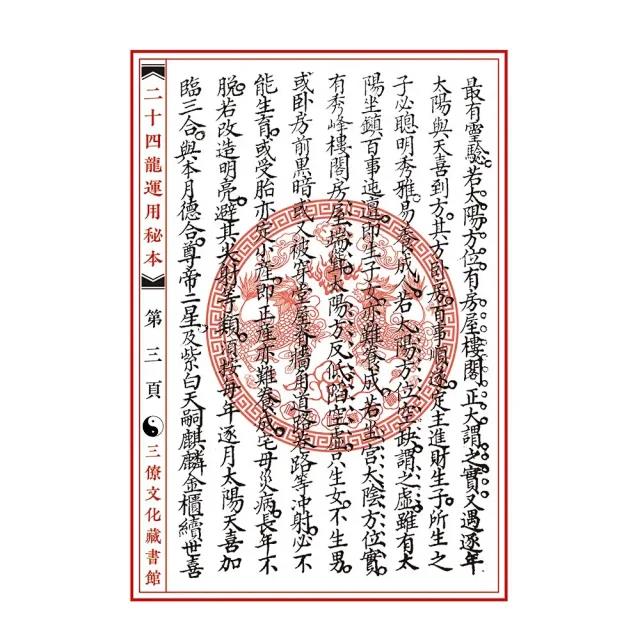 最有靈驗。若太陽方位有房屋樓閣。正大謂之實。又遇逐年
太陽與天喜到方。其方臥房。百事順遂。定主進財生子。所生之
子必聰明秀雅。易養成人。若太陽方位空缺。謂之虛。雖有太
陽坐鎮。百事迍邅。即生子女。亦難養成。若坐宮太陰方位實。
有秀峰樓閣房屋端聳。太陽方反低陷空虛。只生女。不生男。
或卧房前黑暗。或又被穿堂屋脊牆角道路等沖射。必不
能生育。或受胎亦定小產。即正產亦難養成。宅母災病。長年不
脫。若改造明亮。避其尖射等類。須按每年逐月太陽天喜加
臨三合。與本月德合。尊帝二星及紫白天嗣麒麟金櫃續世喜
二十四龍運用秘本
第三頁
三僚文化藏書館